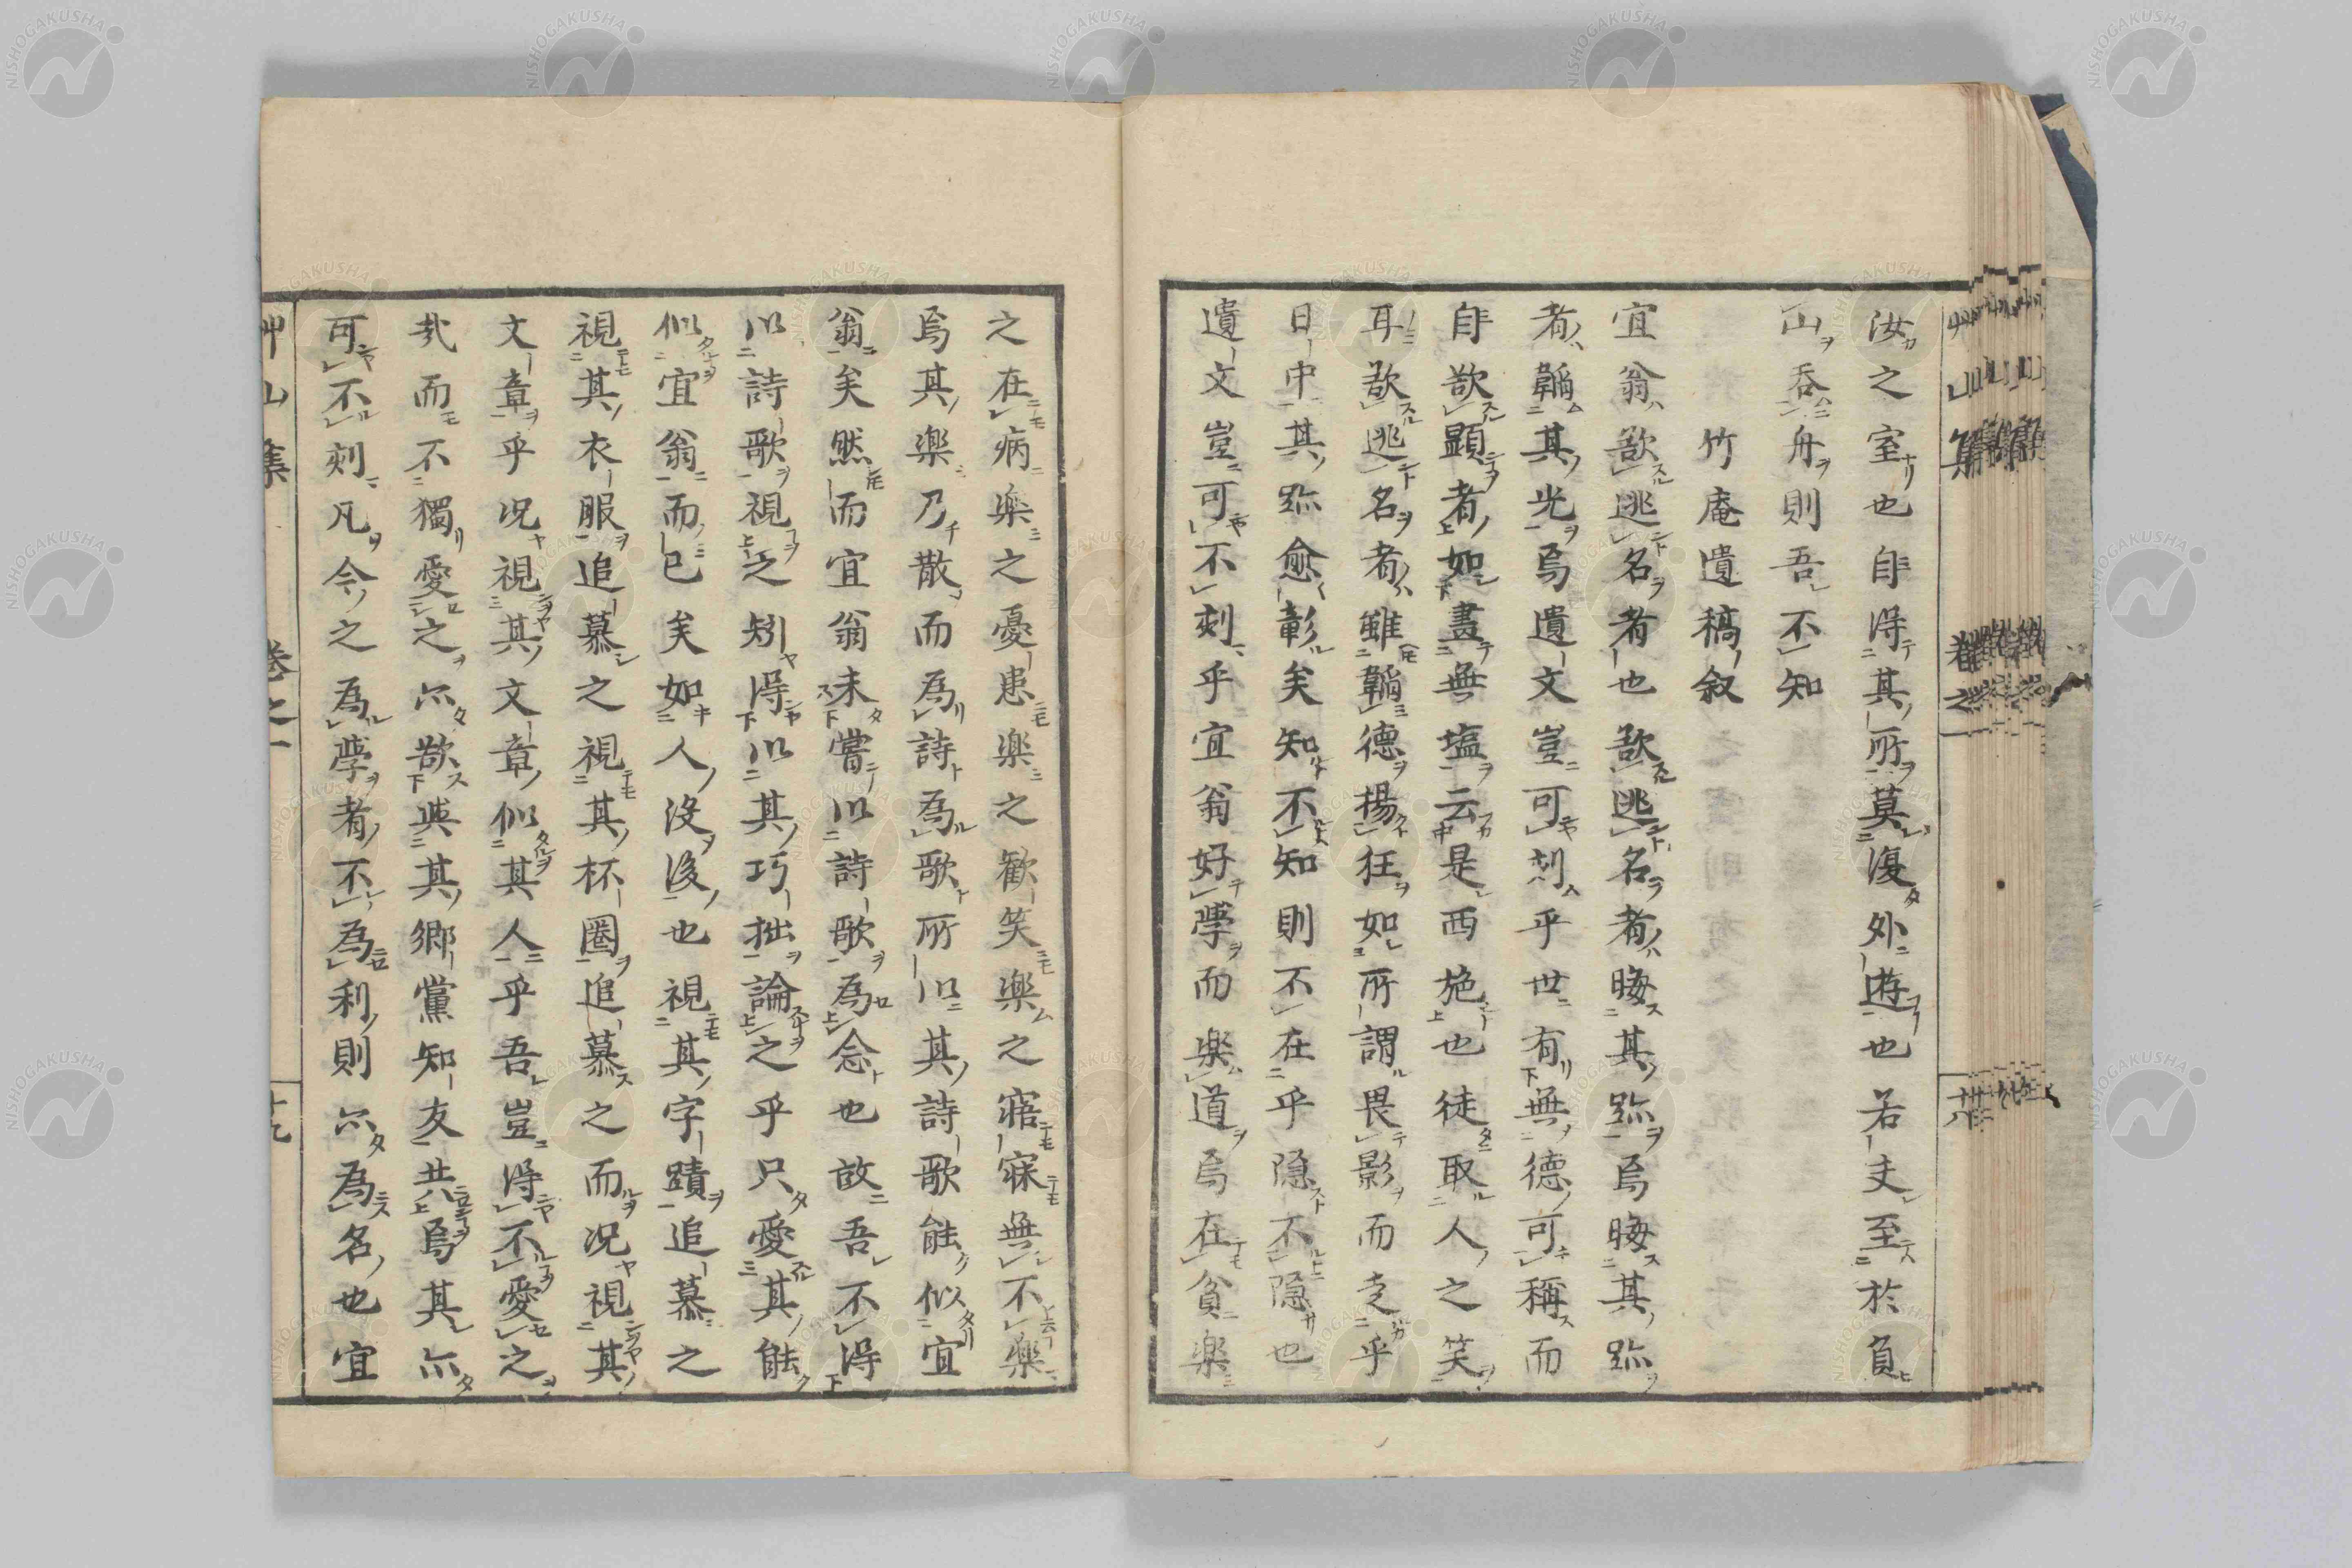 汝之室也自得其所莫復外遊也若夫至於負
山吞舟則吾不知
竹庵遺稿叙
宜翁欲逃名者也欲逃名者晦其跡焉晦其跡
者韜其光焉遺文豈可刻乎世有無德可稱而
自欲顯者如畫無塩云是西施也徒取人之笑
耳欲逃名者雖韜德揚狂如所謂畏影而走乎
日中其跡愈彰矣知不知則不在乎隐不隐也
遺文豈可不刻乎宜翁好學而楽道焉在貧楽
之在病楽之憂患楽之歓笑楽之寤寐無不楽
焉其楽乃散而為詩為歌所以其詩歌能似宜
翁矣然而宜翁未嘗以詩歌為念也故吾不得
以詩歌視之矧得以其巧拙論之乎只愛其能
似宜翁而已矣如人没後也視其字蹟追慕之
視其衣服追慕之視其杯圈追慕之而况視其
文章乎况視其文章似其人乎吾豈得不愛之
哉而不獨愛之亦欲與其郷黨知友共焉其亦
可不刻凡今之為學者不為利則亦為名也宜
艸山集 卷之一 十九